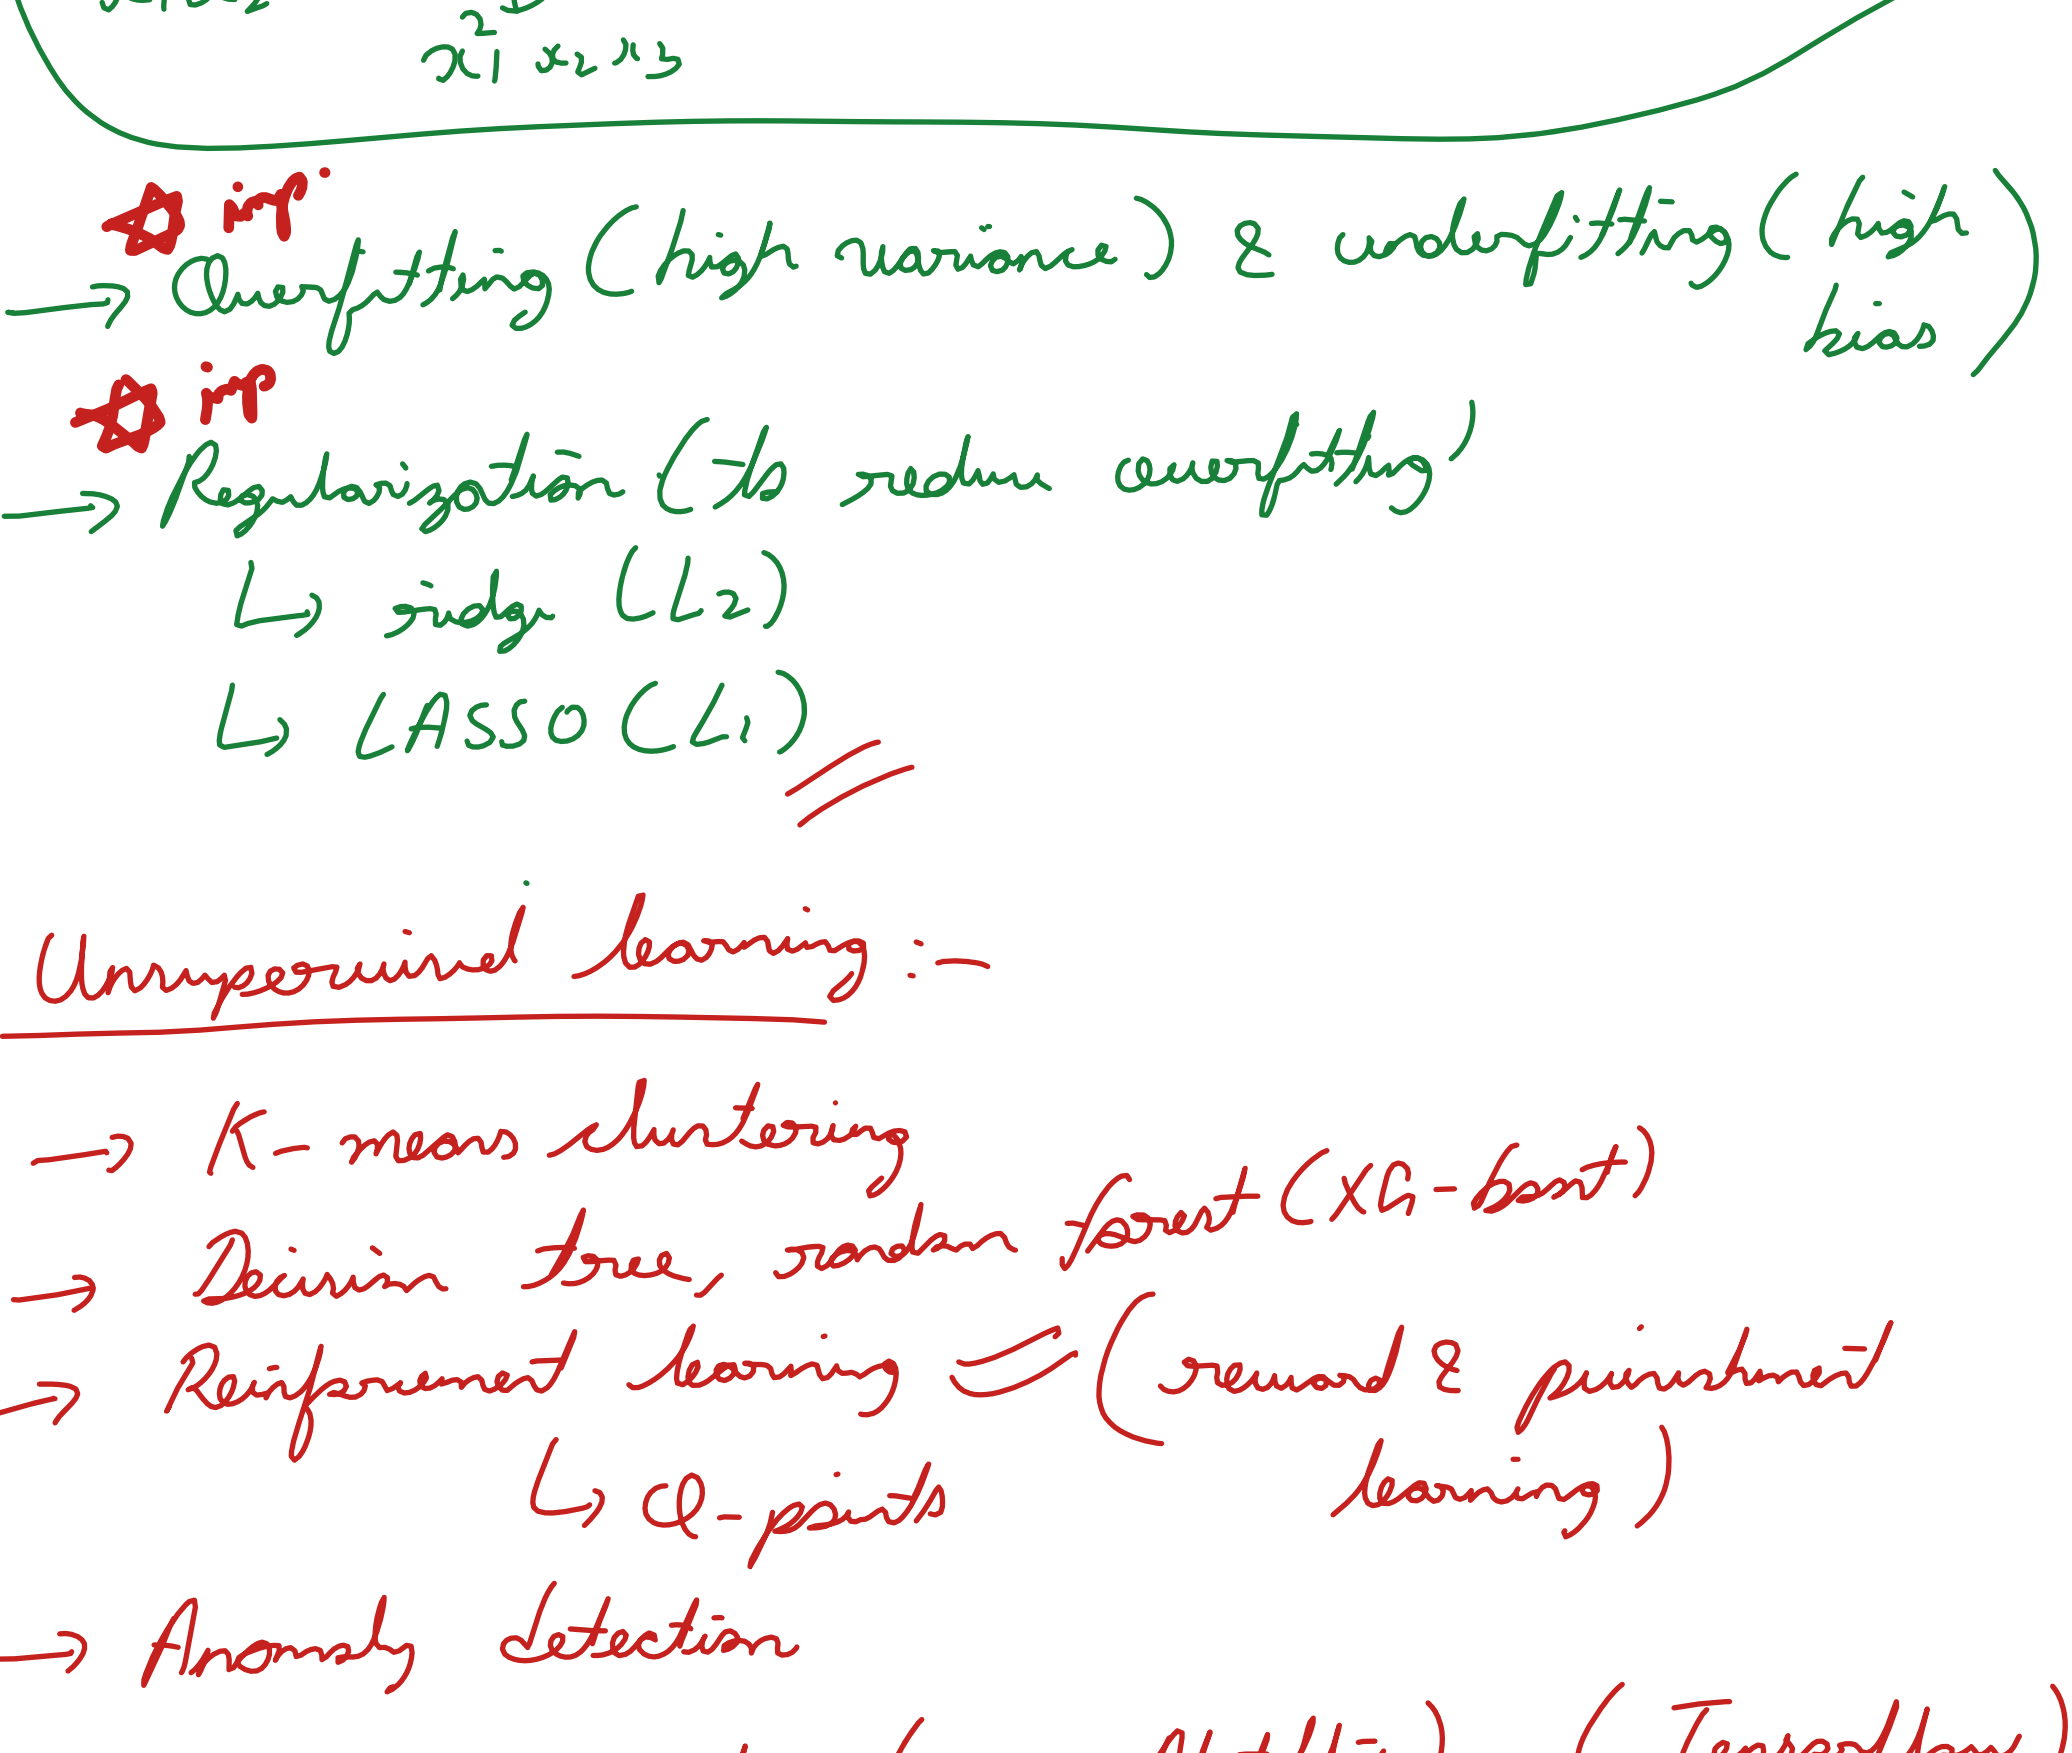 x₁² x₂ x₃
imp.
→ Overfitting (high variance) & underfitting (high
bias)
imp
→ Regularization (to reduce overfitting)
↳ ridge (L2)
↳ LASSO (L1)
Unsupervised learning :-
→ K-mean clustering
→ Decision tree, random forest (XG-boost)
→ Reinforcement learning (reward & punishment
learning)
↳ Q-points
→ Anomaly detection
(Tensorflow)